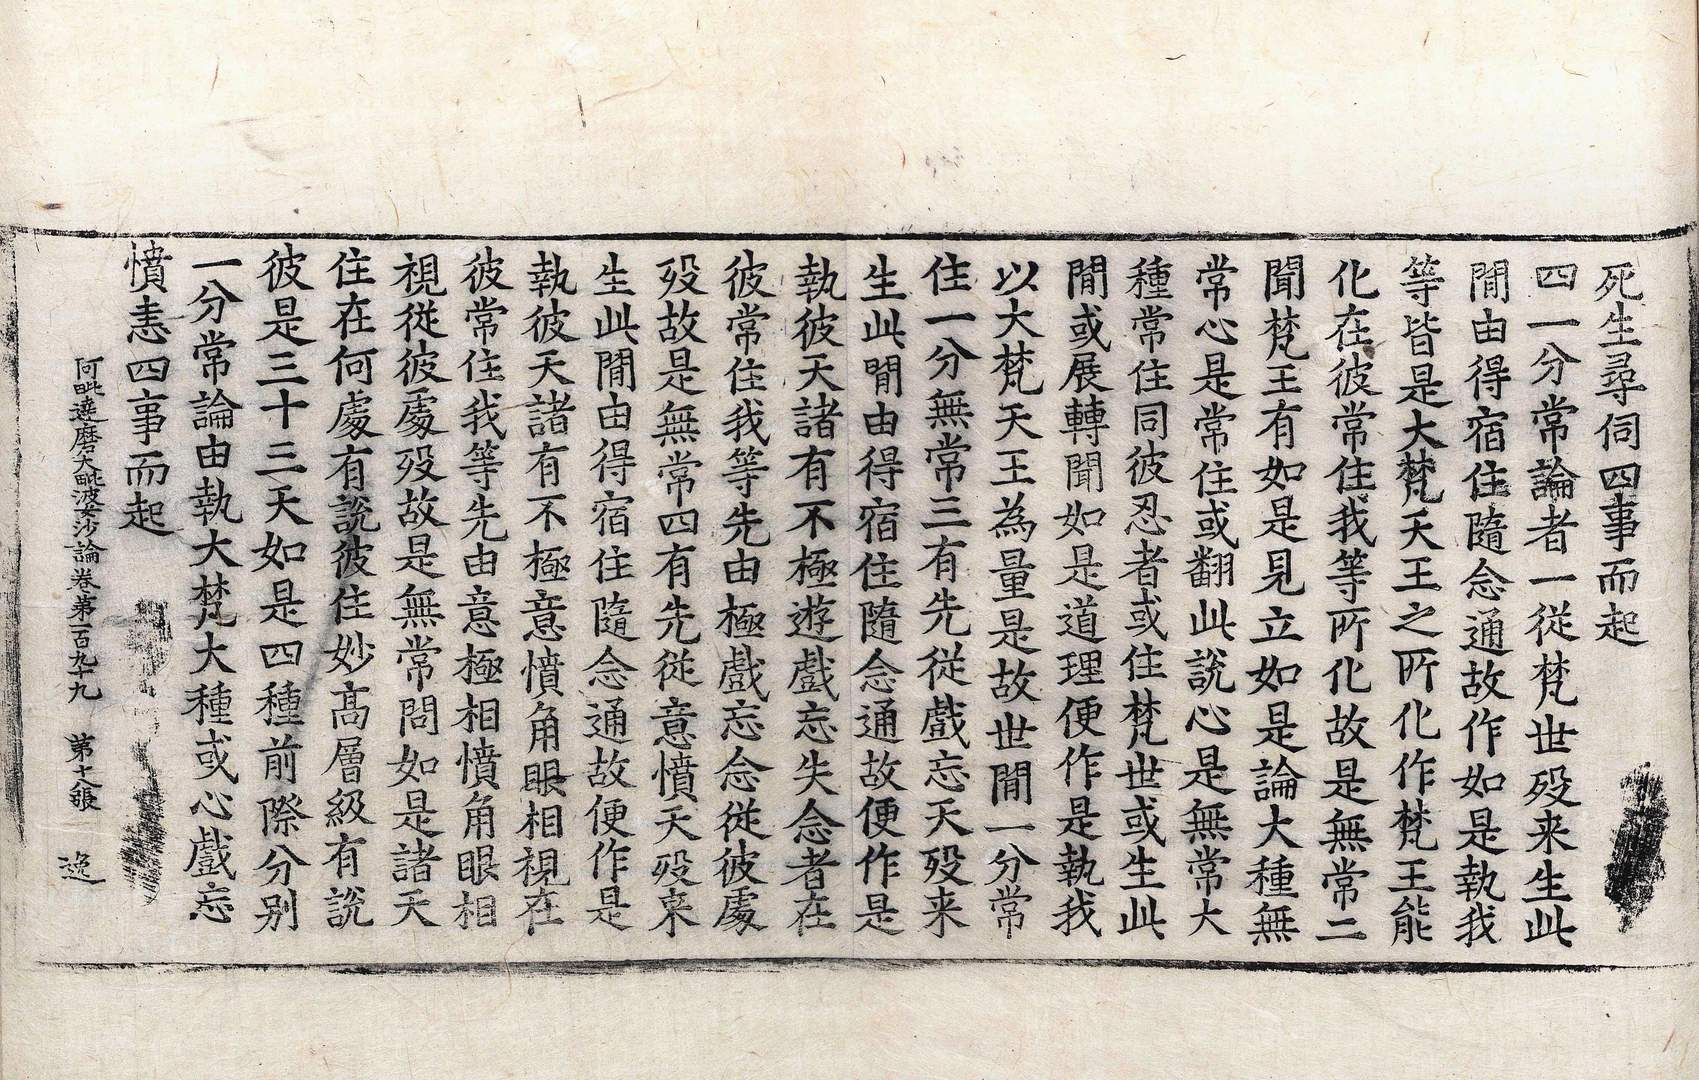 死生尋伺四事而起
四一分常論者一從梵世歿来生此
閒由得宿住隨念通故作如是執我
等皆是大梵天王之所化作梵王能
化在彼常住我等所化故是無常二
聞梵王有如是見立如是論大種無
常心是常住或翻此說心是無常大
種常住同彼忍者或住梵世或生此
閒或展轉聞如是道理便作是執我
以大梵天王為量是故世閒一分常
住一分無常三有先從戲忘天歿来
生此閒由得宿住隨念通故便作是
執彼天諸有不極遊戲忘失念者在
彼常住我等先由極戲忘念從彼處
歿故是無常四有先從意憤天歿来
生此閒由得宿住隨念通故便作是
執彼天諸有不極意憤角眼相視在
彼常住我等先由意極相憤角眼相
視從彼處歿故是無常問如是諸天
住在何處有說彼住妙高層級有說
彼是三十三天如是四種前際分別
一分常論由執大梵大種或心戲忘
憤恚四事而起
阿毗達磨大毗婆沙論卷第一百九十九 第十八張 逸